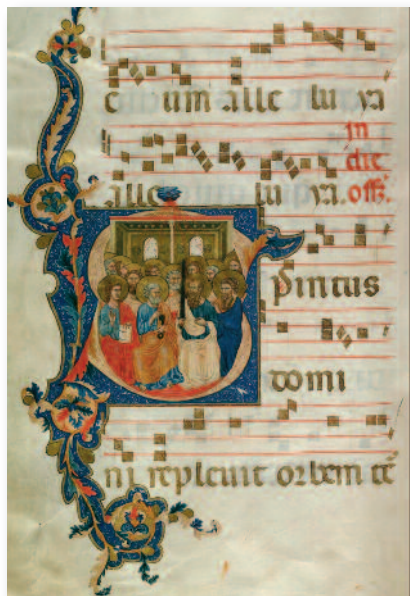 c um alle lu ya
in
die
alle lu ya. off.
Spiritus
domi
ni repleuit orbem te